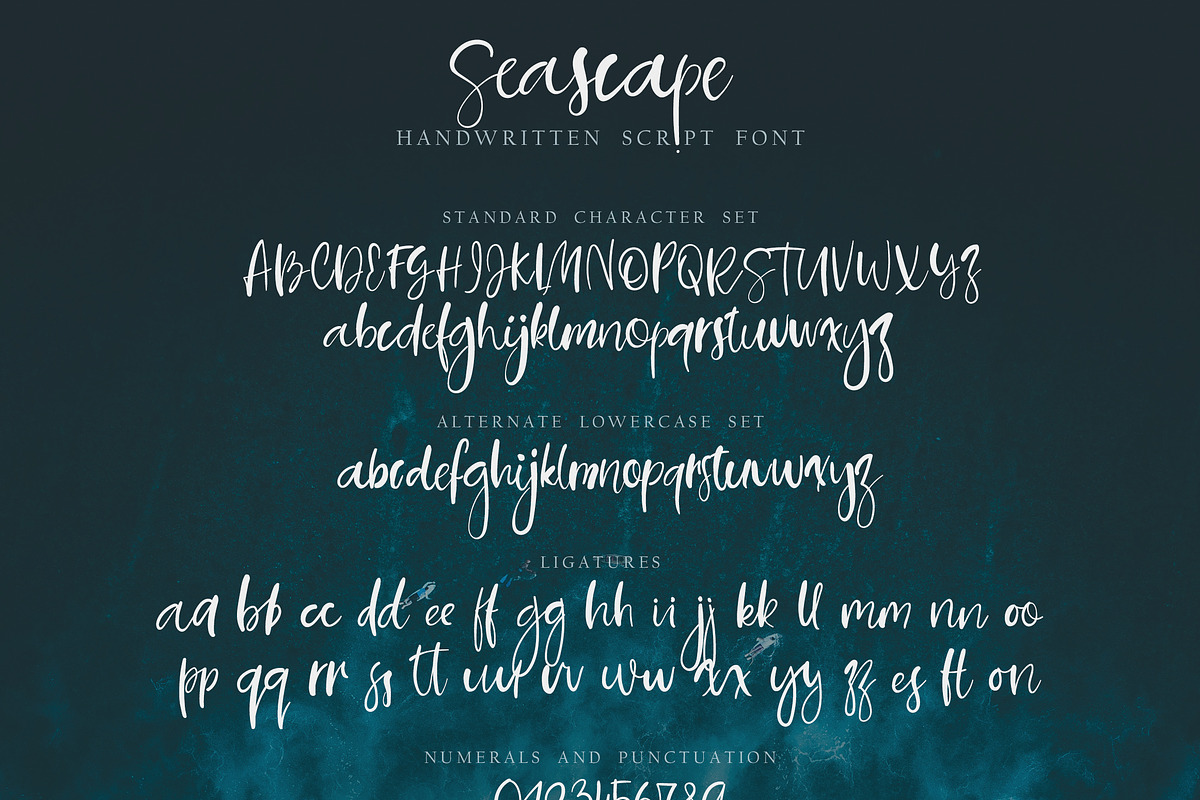 Seascape
HANDWRITTEN SCRIPT FONT
STANDARD CHARACTER SET
ABCDEFGHIJKLMNOPQRSTUVWXYZ
abcdefghijklmnopqrstuvwxyz
ALTERNATE LOWERCASE SET
abcdefghijklmnopqrstuvwxyz
LIGATURES
aa bb cc dd ee ff gg hh ii jj kk ll mm nn oo
pp qq rr ss tt uu vv ww xx yy zz es ft on
NUMERALS AND PUNCTUATION
0123456789